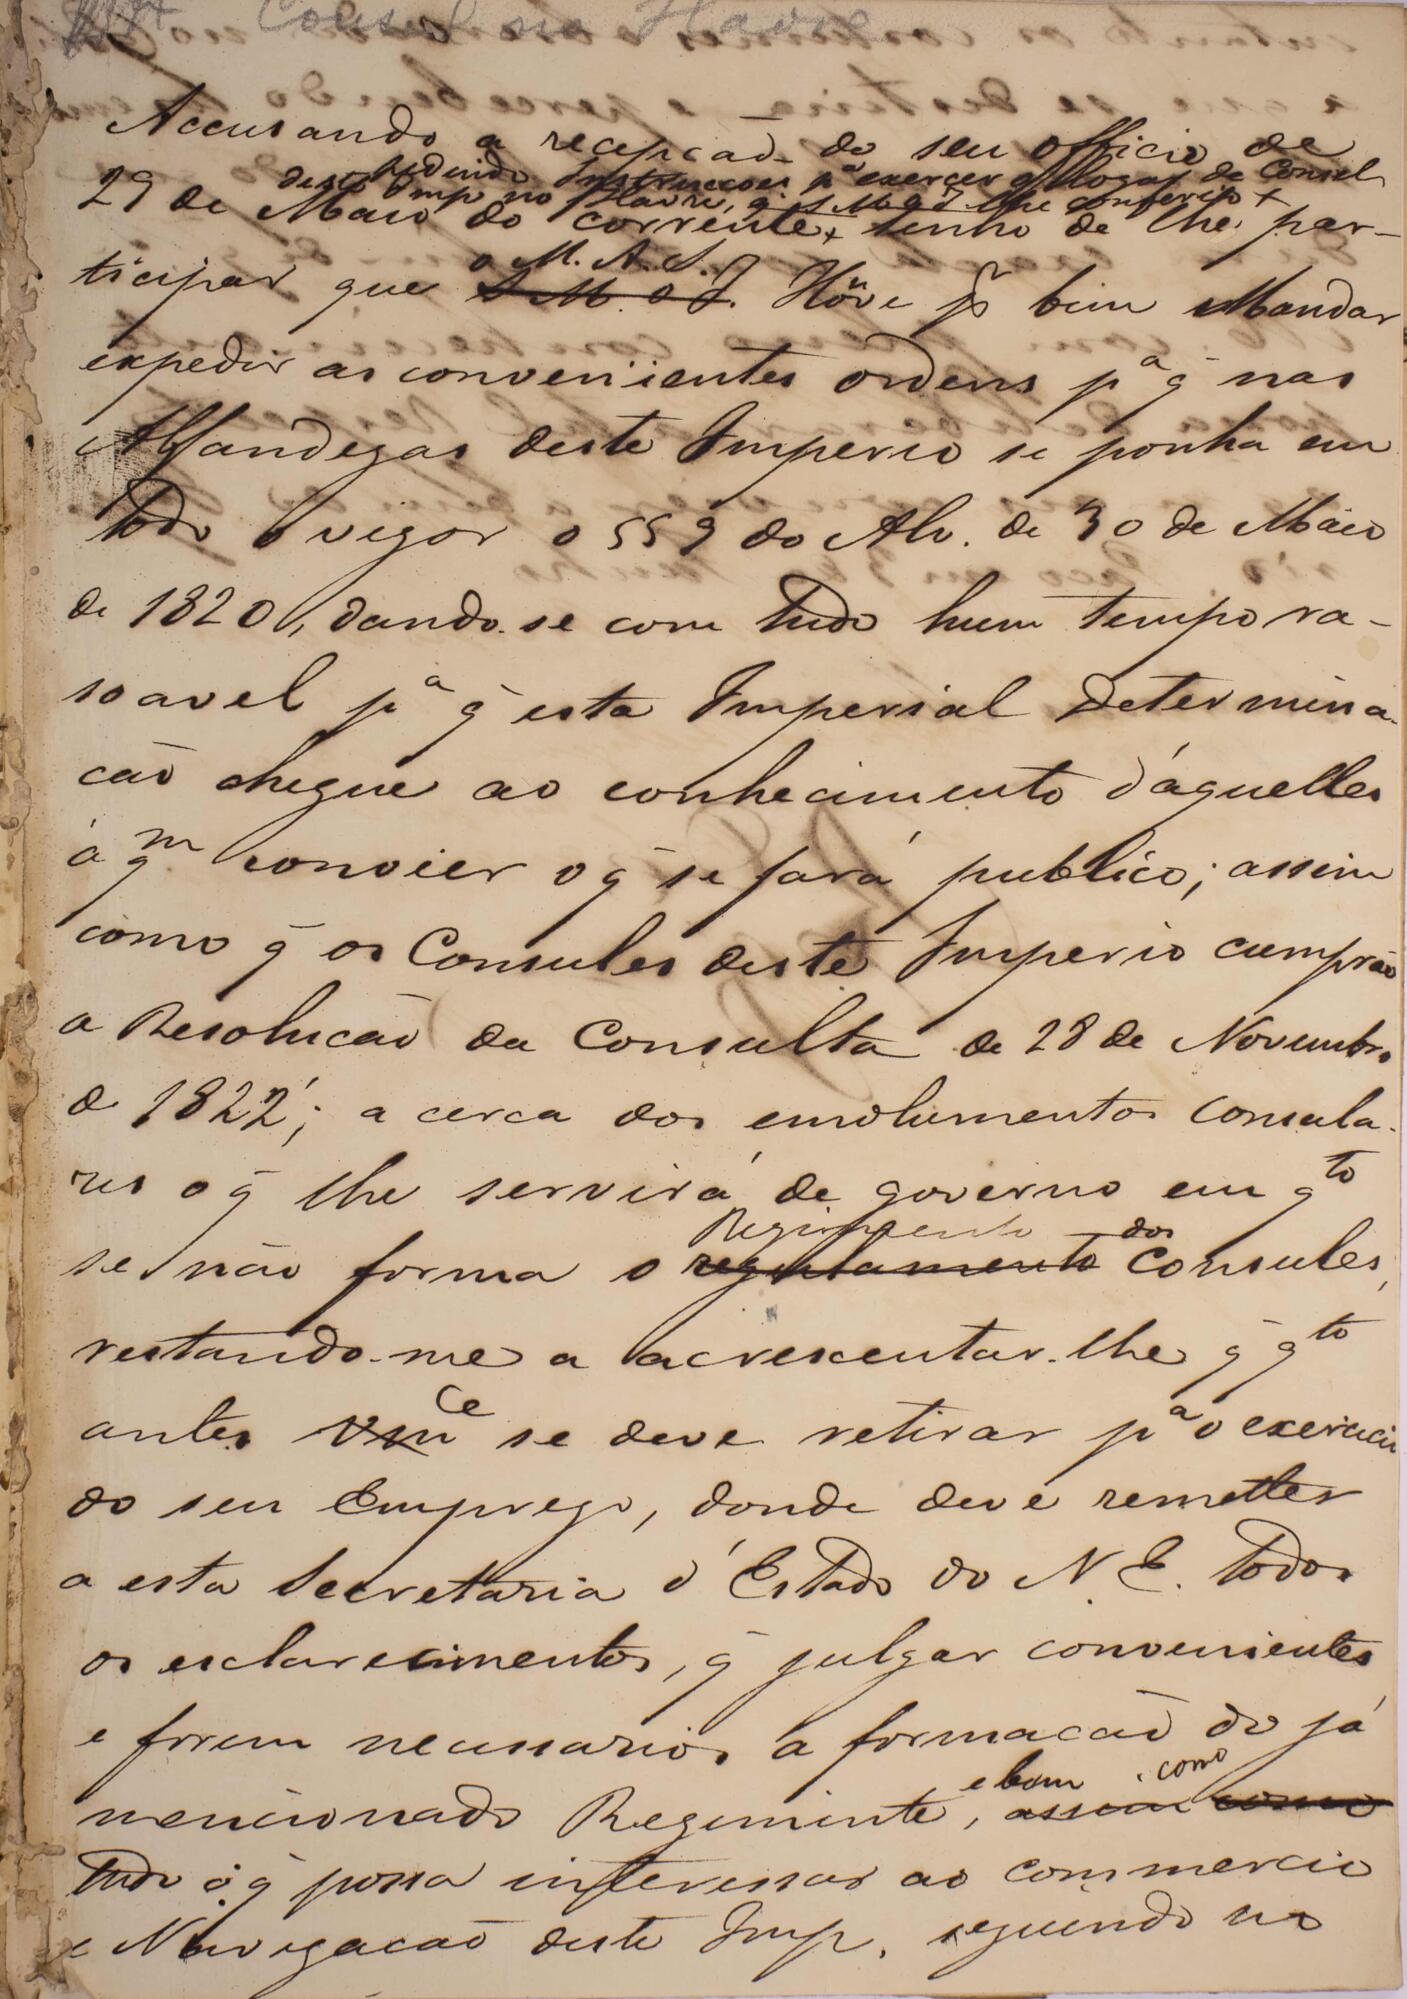 Consul no Havre
Accusando a recepcão do seu officio de
pedindo Instruccoes pª exercer o logar de Consul
deste Imp no Havre, q̃ S M O I. lhe conferio +
29 de Maio do corrente + tenho de lhe par-
o M. A. S.
ticipar que S M O I. Hove pr bem Mandar
expedir as convenientes ordens pª q̃ nas
Alfandegas deste Imperio se ponha em
todo o vigor o §§ 9 do Alv. de 30 de Maio
de 1820, dando-se com tudo hum tempo ra-
soavel pª q̃ esta Imperial Determina-
cão chegue ao conhecimento d'áquelles
á qm convier o q̃ se fará publico; assim
como q̃ os Consules deste Imperio cumprão
a Resolucão da Consulta de 28 de Novembro
de 1822; a cerca dos emolumentos consula-
res o q̃ lhe servirá de governo em qto
Regimento dos
se não forma o regulamento Consules,
restando-me a acrescentar-lhe q̃ qto
antes Vmce se deve retirar pª o exercicio
do seu Emprego, donde deve remetter
a esta Secretaria d'Estado do N. E. todos
os esclarecimentos, q̃ julgar convenientes
e forem necessarios á formacão do já
e bem como
mencionado Regimento, assim como
tudo o q̃ possa interessar ao commercio
e Navegacão deste Imp. seguindo no